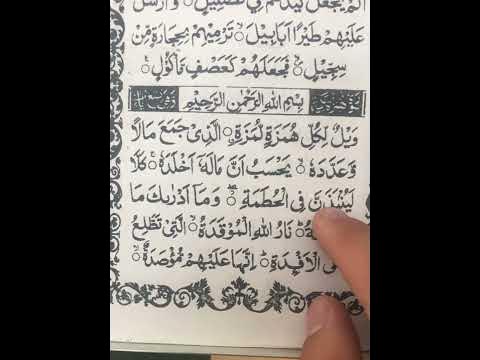 اَلَمْ يَجْعَلْ كَيْدَهُمْ فِيْ تَضْلِيْلٍ وَّاَرْسَلَ
عَلَيْهِمْ طَيْرًا اَبَابِيْلَ تَرْمِيْهِمْ بِحِجَارَةٍ مِّنْ
سِجِّيْلٍ فَجَعَلَهُمْ كَعَصْفٍ مَّاْكُوْلٍ
بِسْمِ اللهِ الرَّحْمٰنِ الرَّحِيْمِ
وَيْلٌ لِّكُلِّ هُمَزَةٍ لُّمَزَةِ الَّذِيْ جَمَعَ مَالًا
وَّعَدَّدَهٗ يَحْسَبُ اَنَّ مَالَهٗٓ اَخْلَدَهٗ كَلَّا
لَيُنْۢبَذَنَّ فِي الْحُطَمَةِ وَمَآ اَدْرٰىكَ مَا
نَارُ اللهِ الْمُوْقَدَةُ الَّتِيْ تَطَّلِعُ
الْاَفْـِٕدَةِ اِنَّهَا عَلَيْهِمْ مُّؤْصَدَةٌ